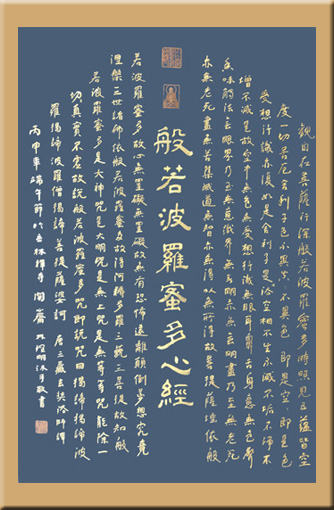 般若波羅蜜多心經
觀自在菩薩行深般若波羅蜜多時照見五蘊皆空
度一切苦厄舍利子色不異空空不異色色即是空空即是色
受想行識亦復如是舍利子是諸法空相不生不滅不垢不淨不
增不減是故空中無色無受想行識無眼耳鼻舌身意無色聲
香味觸法無眼界乃至無意識界無無明亦無無明盡乃至無老死
亦無老死盡無苦集滅道無智亦無得以無所得故菩提薩埵依般
若波羅蜜多故心無罣礙無罣礙故無有恐怖遠離顛倒夢想究竟
涅槃三世諸佛依般若波羅蜜多故得阿耨多羅三藐三菩提故知般
若波羅蜜多是大神咒是大明咒是無上咒是無等等咒能除一
切真實不虛故說般若波羅蜜多咒即說咒曰揭諦揭諦波
羅揭諦波羅僧揭諦菩提薩婆訶 唐三藏玄奘法師譯
丙申年端午節於吉林 沐手敬書